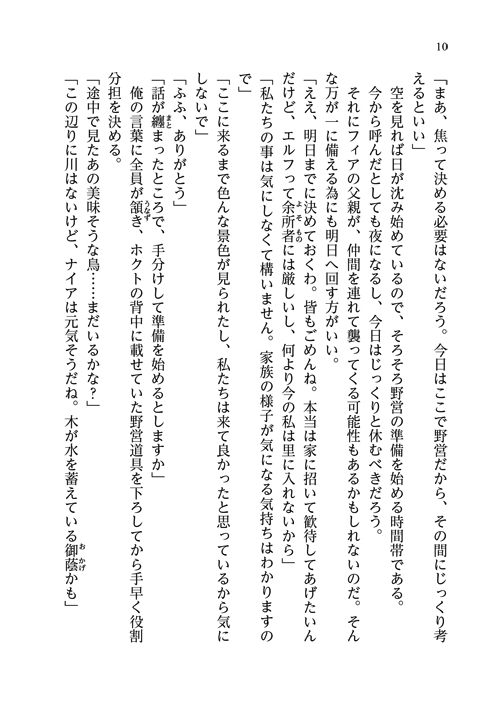 10
「まあ、焦って決める必要はないだろう。今日はここで野営だから、その間にじっくり考
えるといい」
空を見れば日が沈み始めているので、そろそろ野営の準備を始める時間帯である。
今から呼んだとしても夜になるし、今日はじっくりと休むべきだろう。
それにフィアの父親が、仲間を連れて襲ってくる可能性もあるかもしれないのだ。そん
な万が一に備える為にも明日へ回す方がいい。
「ええ、明日までに決めておくわ。皆もごめんね。本当は家に招いて歓待してあげたいん
だけど、エルフって余所者には厳しいし、何より今の私は里に入れないから」
「私たちの事は気にしなくて構いません。家族の様子が気になる気持ちはわかりますの
で」
「ここに来るまで色んな景色が見られたし、私たちは来て良かったと思っているから気に
しないで」
「ふふ、ありがとう」
「話が纏まったところで、手分けして準備を始めるとしますか」
俺の言葉に全員が頷き、ホクトの背中に載せていた野営道具を下ろしてから手早く役割
分担を決める。
「途中で見たあの美味そうな鳥……まだいるかな？」
「この辺りに川はないけど、ナイアは元気そうだね。木が水を蓄えている御蔭かも」